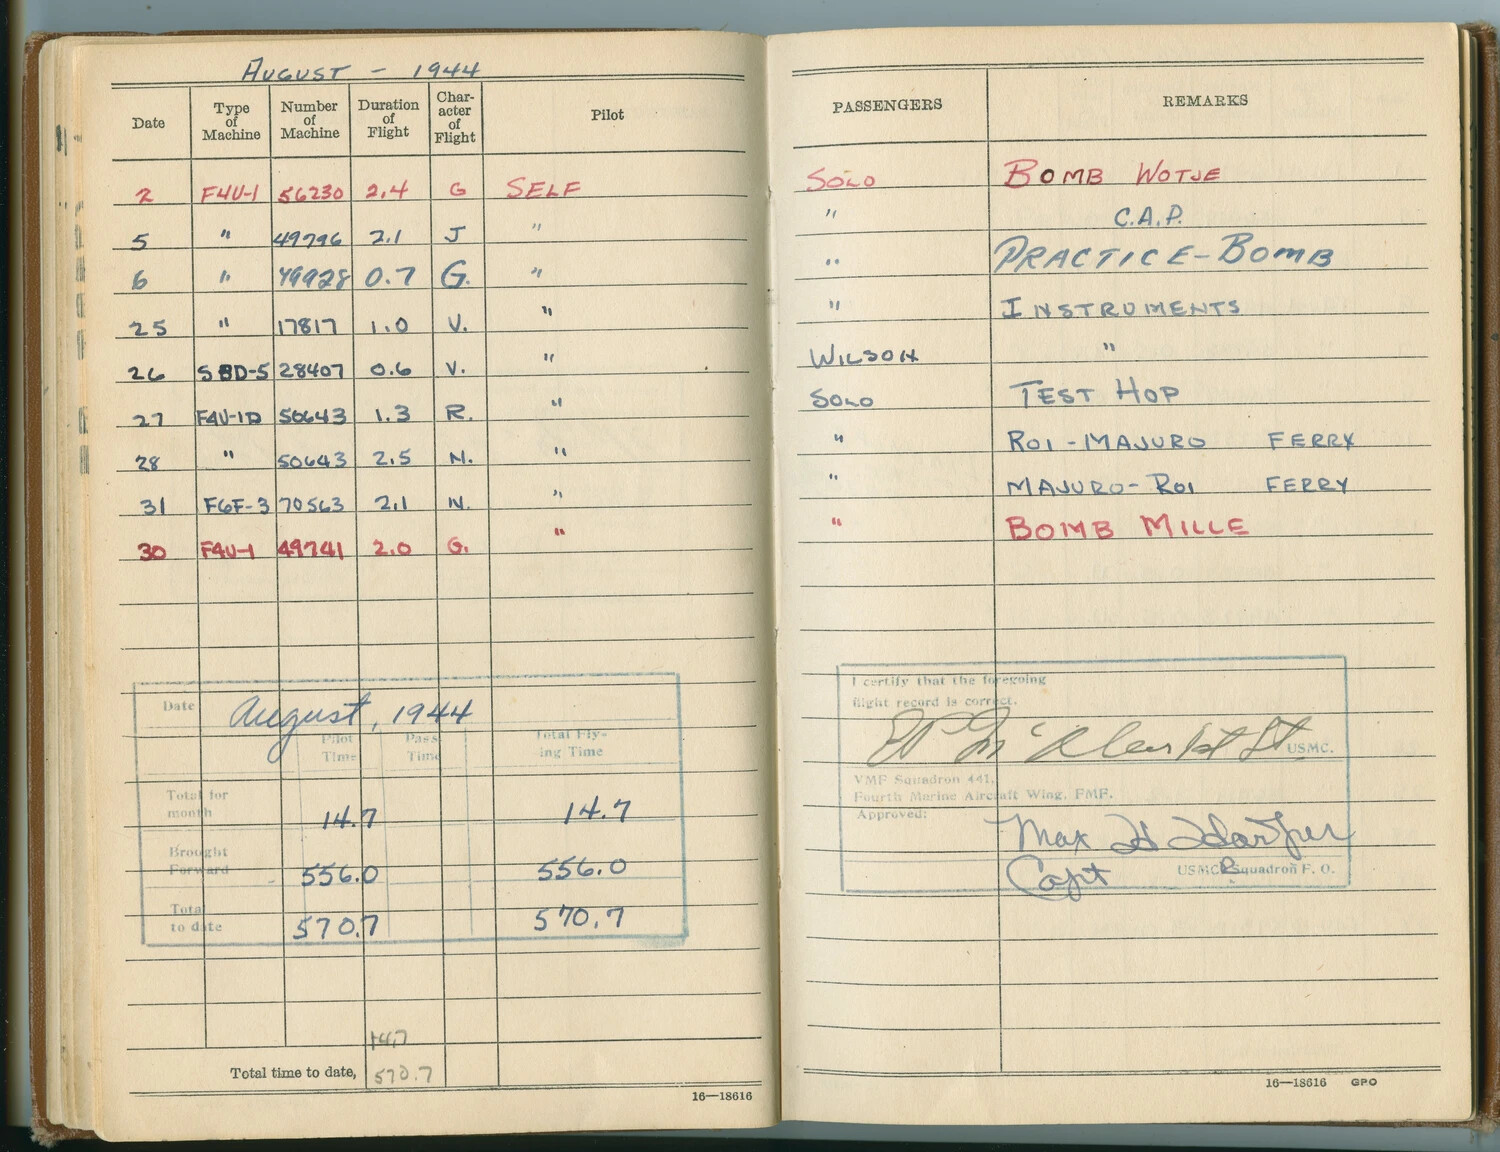 August - 1944
Date Type of Machine Number of Machine Duration of Flight Character of Flight Pilot PASSENGERS REMARKS
2 F4U-1 56230 2.4 G SELF SOLO BOMB WOTJE
5 " 49796 2.1 J " " C.A.P.
6 " 49928 0.7 G. " " PRACTICE-BOMB
25 " 17817 1.0 V. " " INSTRUMENTS
26 SBD-5 28407 0.6 V. " WILSON "
27 F4U-1D 50643 1.3 R. " SOLO TEST HOP
28 " 50643 2.5 N. " " ROI-MAJURO FERRY
31 F6F-3 70563 2.1 N. " " MAJURO-ROI FERRY
30 F4U-1 49741 2.0 G. " " BOMB MILLE
Date August, 1944
Pilot Time Pass. Time Total Flying Time
Total for month 14.7 14.7
Brought Forward 556.0 556.0
Total to date 570.7 570.7
14.7
Total time to date, 570.7
16—18616
I certify that the foregoing
flight record is correct.
USMC.
VMF Squadron 441,
Fourth Marine Aircraft Wing, FMF.
Approved:
Max H
Capt USMCR Squadron F. O.
16—18616 GPO